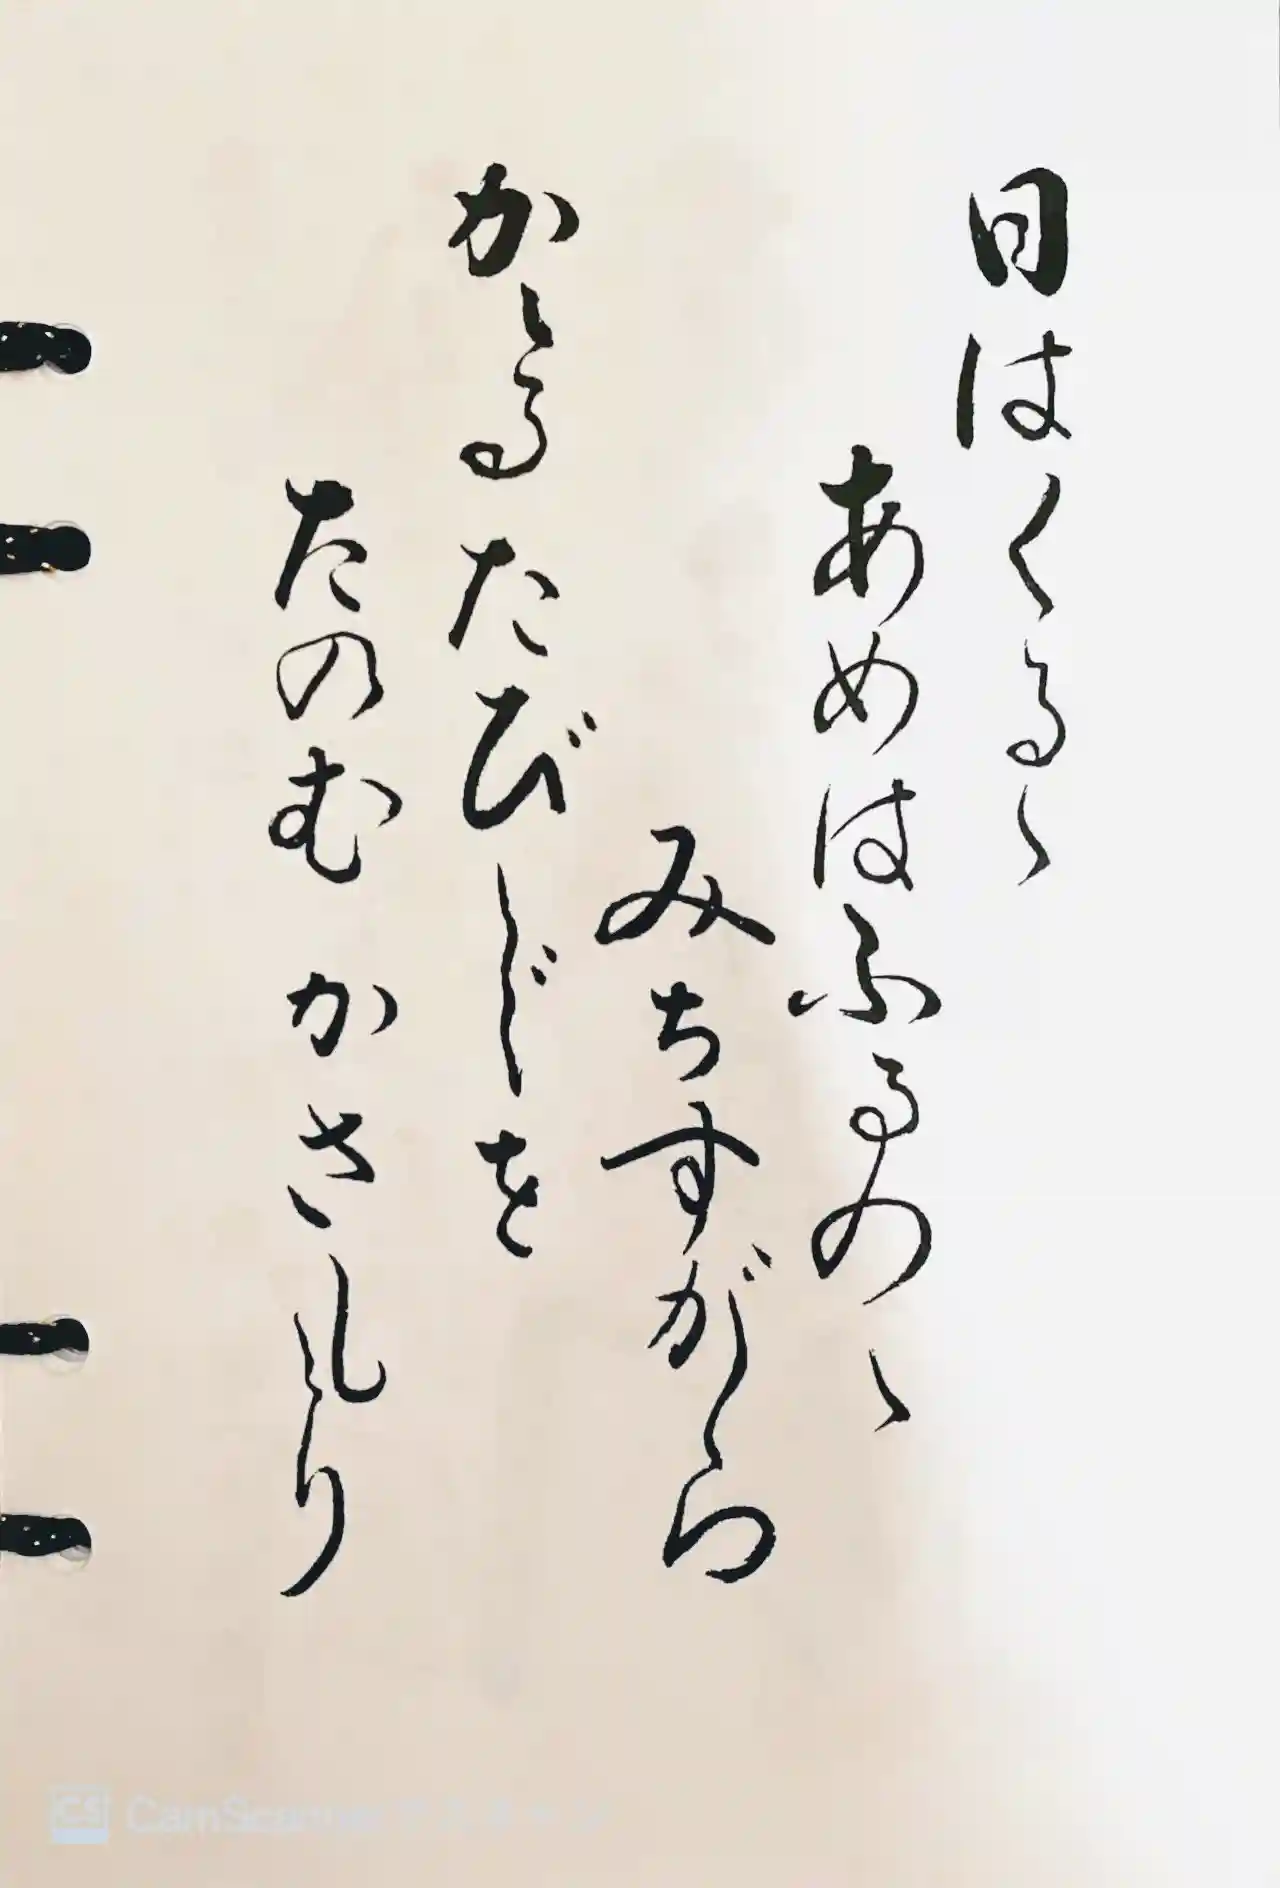 日はくるゝ
あめはふるのゝ
みちすがら
かゝるたびじを
たのむかさもり
CS CamScanner でスキャン